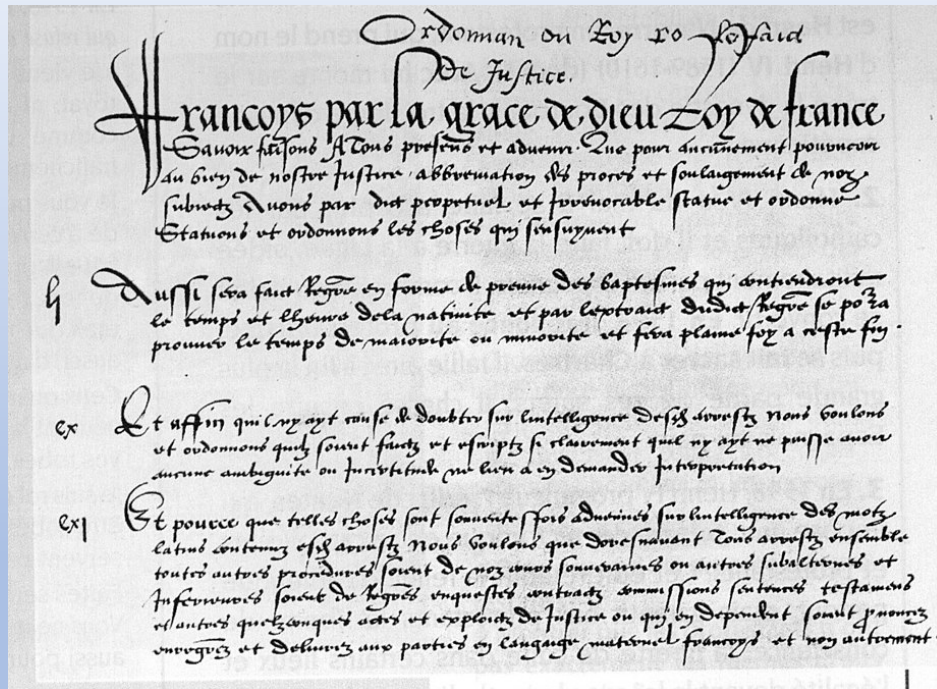 Ordonnan du Roy sur le faid
De Justice.
Francoys par la grace de dieu Roy de france
Savoir faisons A Tous presens et advenir Que pour aucunnement pourveoir
au bien de nostre Justice abbreviation des proces et soulaigement de noz
subiectz Avons par edict perpetuel et Irrevocable statue et ordonne
Statuons et ordonnons les choses qui sensuyvent
Aussi sera faict Regrē en forme de preuve des baptesmes qui contiendront
le temps et lheure dela nativite et par lextraict dudict Regrē se porra
prouver le temps de maiorite ou minorite et fera plaine foy a ceste fin
cx Et affin quil ny ayt cause de doubter sur lintelligence desd arrestz Nous voulons
et ordonnons quilz soient faictz et escriptz si clairement quil ny ayt ne puisse avoir
aucune ambiguite ou Incertitude ne lieu a en demander Interpretation
cxj Et pource que telles choses sont souventeffois advenues sur lintelligence des motz
latins contenuz esd arrestz Nous voulons que doresnavant Tous arrestz ensemble
toutes autres procedures soient de noz cours souveraines ou autres subalternes et
Inferieures soient de Regrēs enquestes contractz commissions sentences testamens
et autres quelzconques actes et exploictz de Justice ou qui en dependent soient prononcez
enregrēz et delivrez aux parties en langaige maternel francoys et non autrement